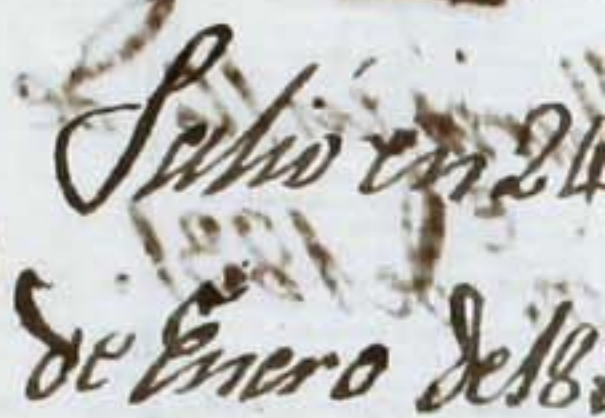 Salió en 24
de Enero de 18